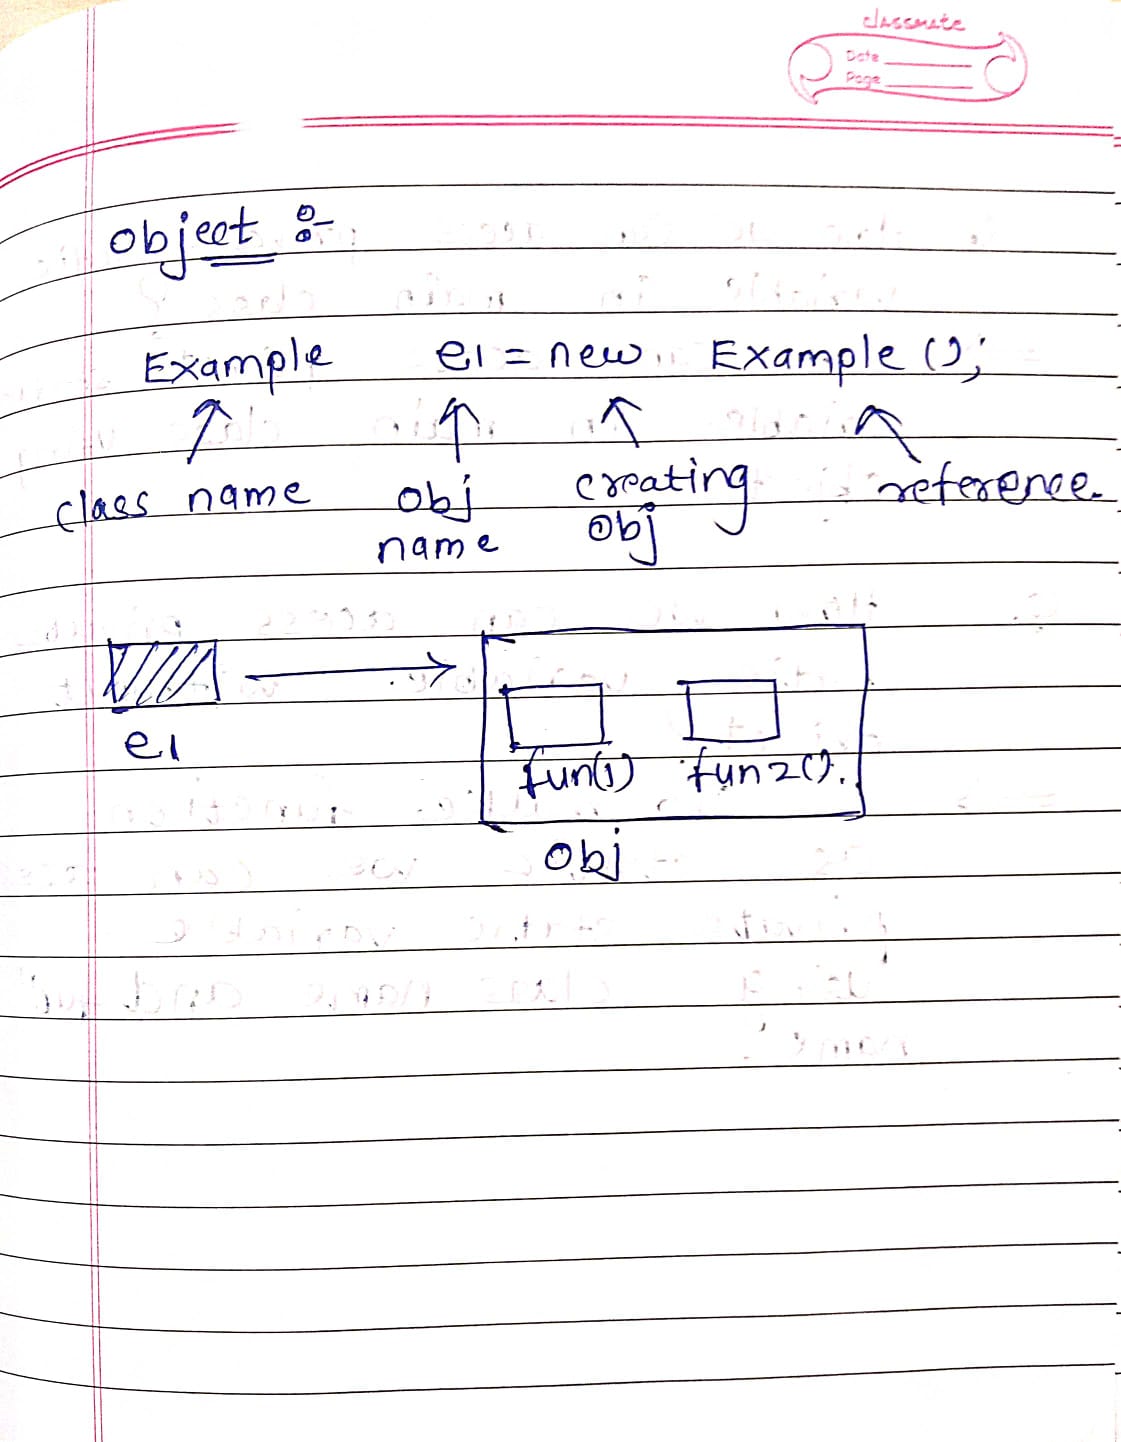 classmate
Date
Page
object :-
Example e1 = new Example ();
class name obj name creating obj reference.
e1
fun(1) fun2().
obj